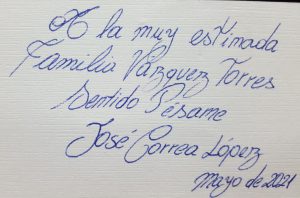 A la muy estimada
Familia Vázquez Torres
Sentido Pésame
José Correa López
Mayo de 2021